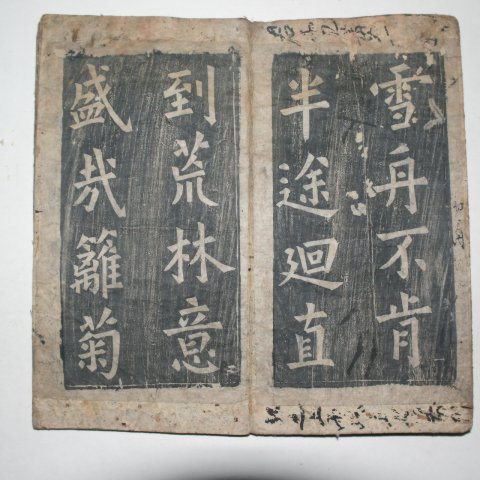 雪舟不肯
半途迴直
到荒林意
盛哉籬菊